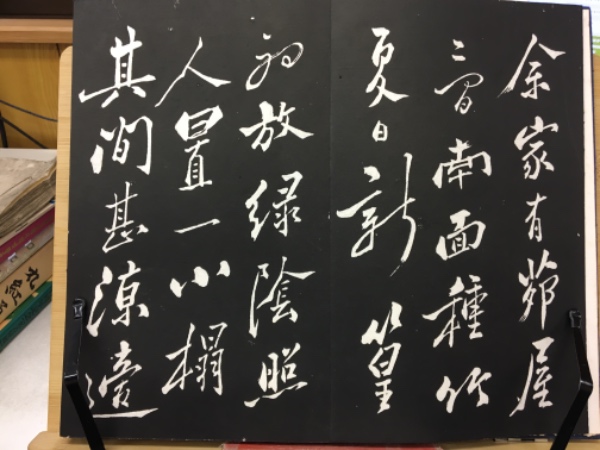 余家有茆屋
二間南面種竹
夏日新篁
初放緑陰照
人置一小榻
其間甚涼適